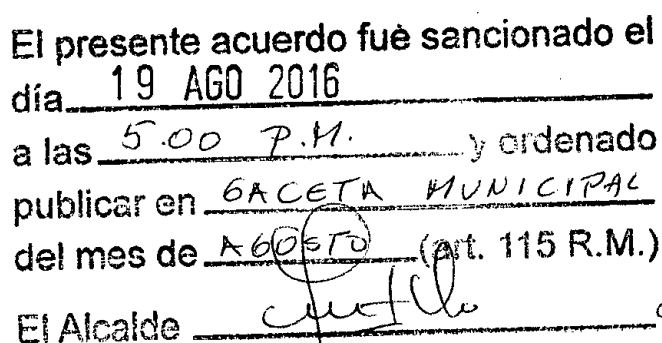 El presente acuerdo fué sancionado el
día 19 AGO 2016
a las 5.00 P.M. y ordenado
publicar en GACETA MUNICIPAL
del mes de AGOSTO (art. 115 R.M.)
El Alcalde